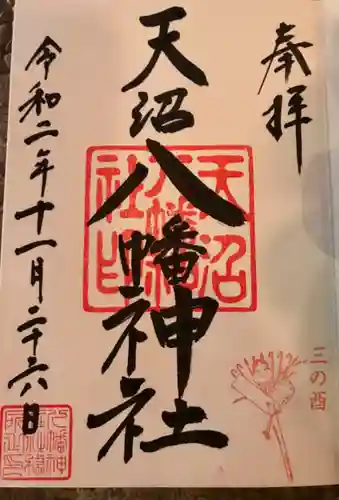 奉拝
三の酉
天沼八幡神社
天沼八幡神社印
令和二年十一月二十六日